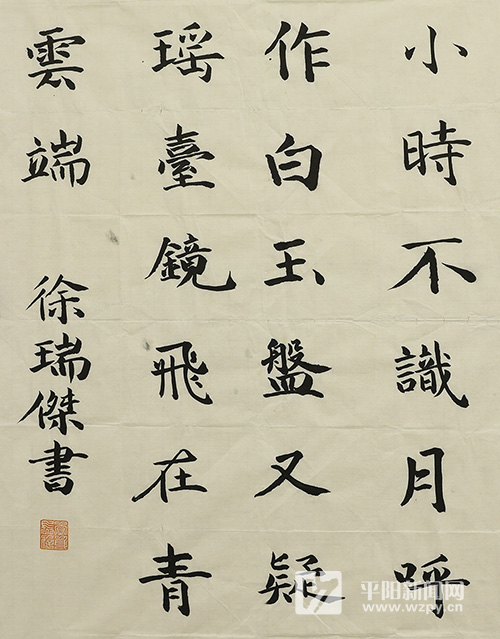 小時不識月呼
作白玉盤又疑
瑶臺鏡飛在青
雲端
徐瑞傑書
平阳新闻网
www.wzpy.cn